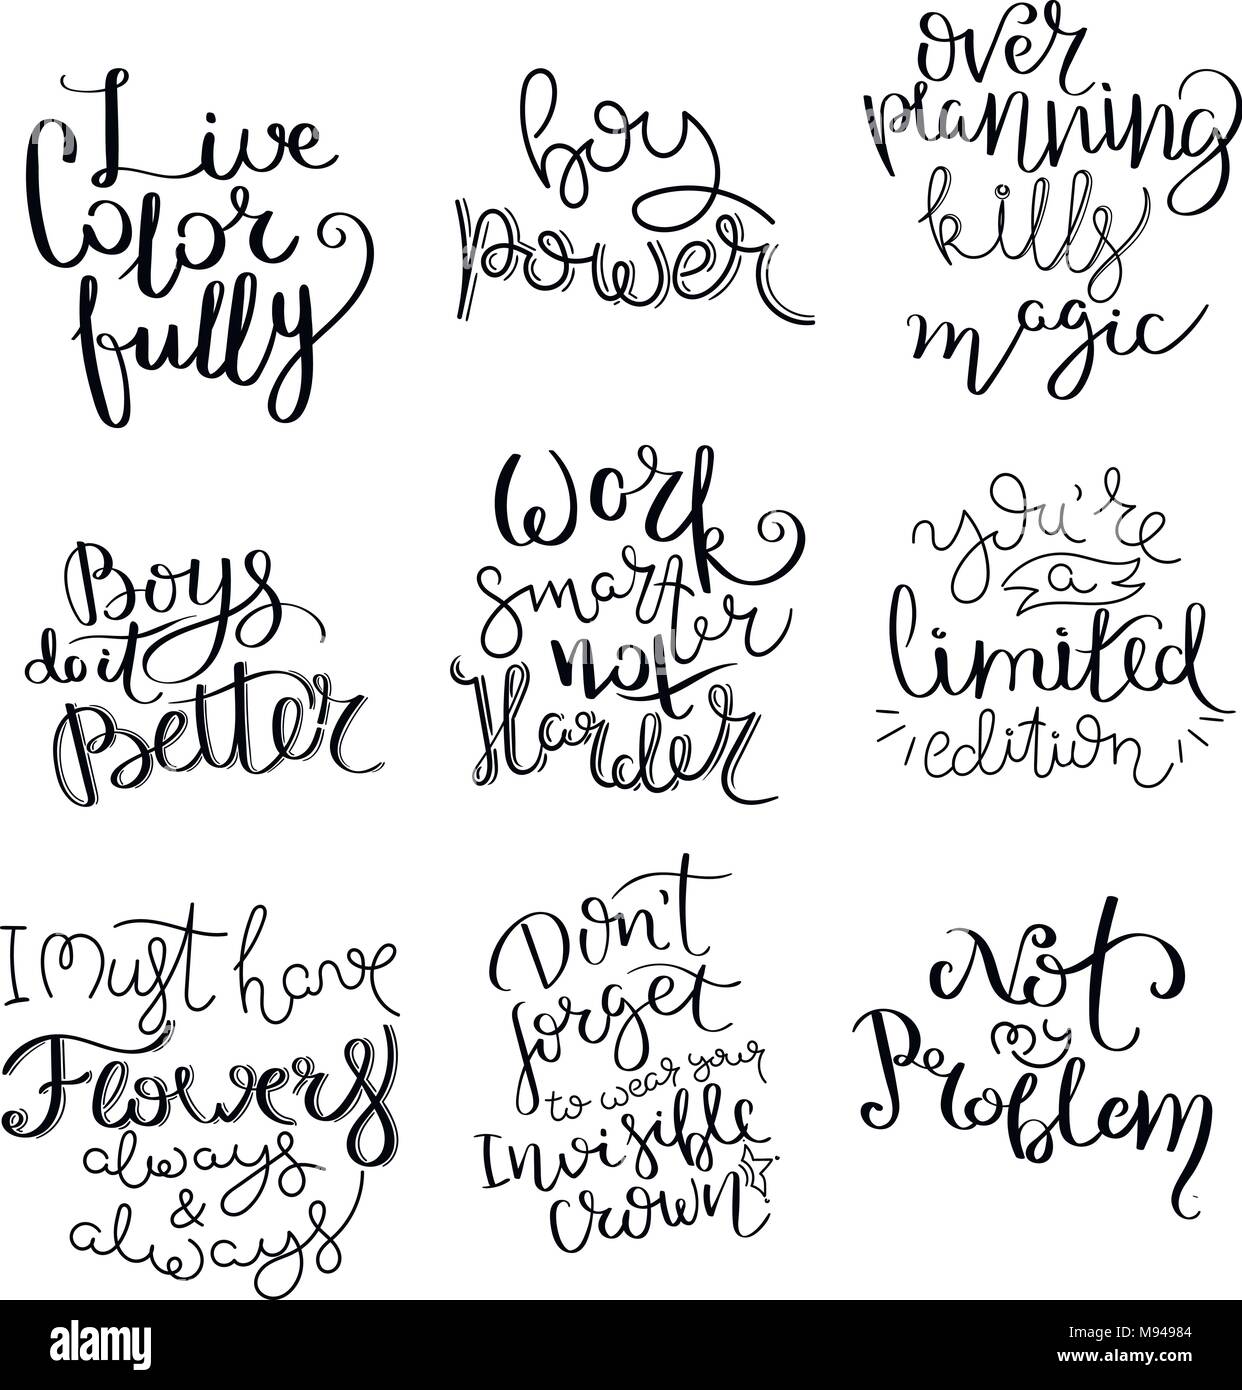 Live
Color
fully
boy
power
over
planning
kills
magic
Boys
do it
Better
Work
smarter
not
Harder
you're
a
limited
edition
I Must have
Flowers
always
&
always
Don't
forget
to wear your
Invisible
crown
Not
my
Problem
alamy
Image ID: M94984
www.alamy.com